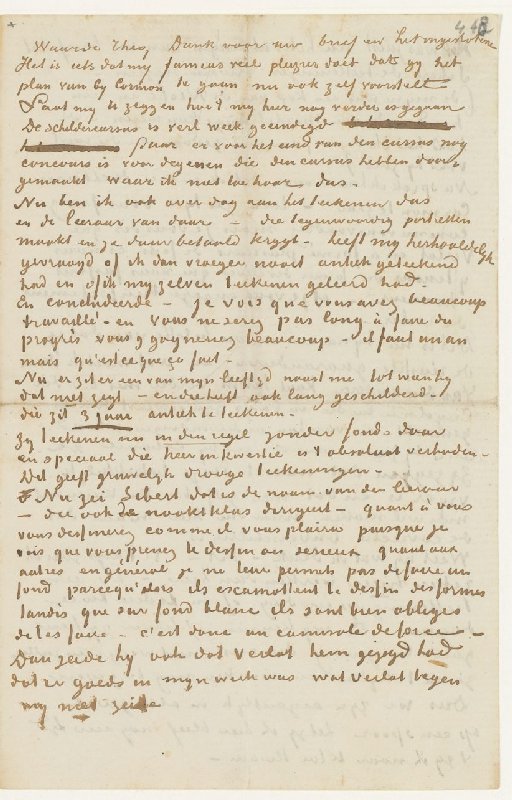 448
Waarde Theo, Dank voor uw brief en het ingeslotene
Het is iets dat my fameus veel pleizier doet dat gy het
plan van by Cormon te gaan nu ook zelf voorstelt
Laat my U zeggen hoe 't my hier nog verder is gegaan
De schildercursus is verl week geeindigd
Daar er voor het eind van den cursus nog
concours is voor degenen die den cursus hebben door-
gemaakt waar ik niet toe hoor dus.
Nu ben ik ook over dag aan het teekenen dus
en de leeraar van daar – die tegenwoordig portretten
maakt en ze duur betaald krygt – heeft my herhaaldelyk
gevraagd of ik dan vroeger nooit antiek geteekend
had en of ik my zelven teekenen geleerd had.
En concludeerde – je vois que vous avez beaucoup
travaillé – en vous ne serez pas long à faire du
progrès vous y gagnerez beaucoup – il faut un an
mais qu'est ce que ça fait –
Nu er zit er een van myn leeftyd naast me tot wien hy
dat niet zegt – en die heeft ook lang geschilderd –
die zit 3 jaar antiek te teekenen.
Zy teekenen nu in den regel zonder fonds daar
en speciaal die heer in kwestie is 't absoluut verboden –
Dit geeft gruwelyk drooge teekeningen –
Nu zei Sibert dat is de naam van den leeraar
– die ook de naaktklas dirigeert – quant à vous
vous dessinerez comme il vous plaira puisque je
vois que vous prenez le dessin au serieux quant aux
autres en général je ne leur permets pas de faire un
fond parcequ'alors ils escamottent le dessin des formes
tandis que sur fond blanc ils sont bien obligés
de les faire – c'est donc un camisole de force –
Dan zeide hy ook dat Verlat hem gezegd had
dat er goeds in myn werk was wat Verlat tegen
my niet zeide